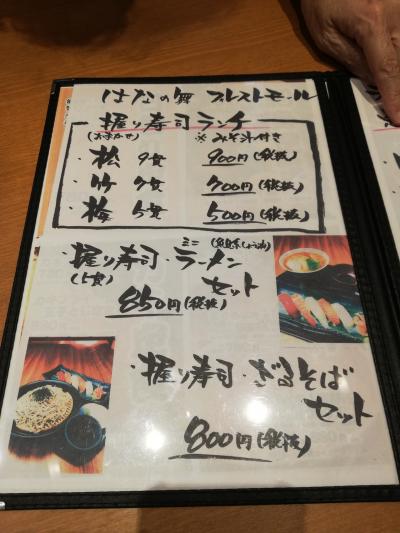 はなの舞 プレストモール
握り寿司ランチ
(おまかせ) ※みそ汁付き
・松 9貫 900円(税抜)
・竹 7貫 700円(税抜)
・梅 5貫 500円(税抜)
・握り寿司・ミニラーメン
(5貫) セット
850円(税抜)
・握り寿司・ざるそば
セット
800円(税抜)